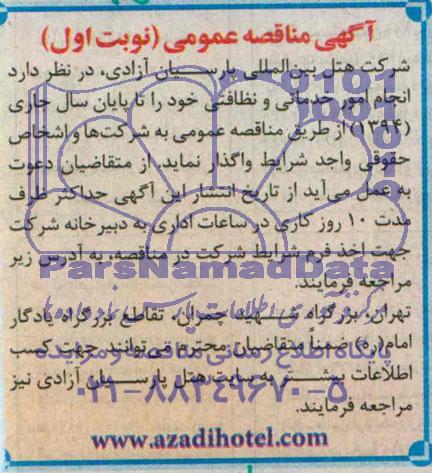 آگهی مناقصه عمومی (نوبت اول)
شرکت هتل بین‌المللی پارسیان آزادی، در نظر دارد
انجام امور خدماتی و نظافتی خود را تا پایان سال جاری
(۱۳۹۴) از طریق مناقصه عمومی به شرکت‌ها و اشخاص
حقوقی واجد شرایط واگذار نماید. از متقاضیان دعوت
به عمل می‌آید از تاریخ انتشار این آگهی حداکثر ظرف
مدت ۱۰ روز کاری در ساعات اداری به دبیرخانه شرکت
جهت اخذ فرم شرایط شرکت در مناقصه، به آدرس زیر
ParsNamadData
مراجعه فرمایند.
تهران، بزرگراه شهید چمران، تقاطع بزرگراه یادگار
پایگاه اطلاع رسانی مناقصه و مزایده
امام(ره) ضمناً متقاضیان محترم می‌توانند جهت کسب
اطلاعات بیشتر به سایت هتل پارسیان آزادی نیز
۰۲۱-۸۸۳۴۹۶۷۰-۵
مراجعه فرمایند.
www.azadihotel.com